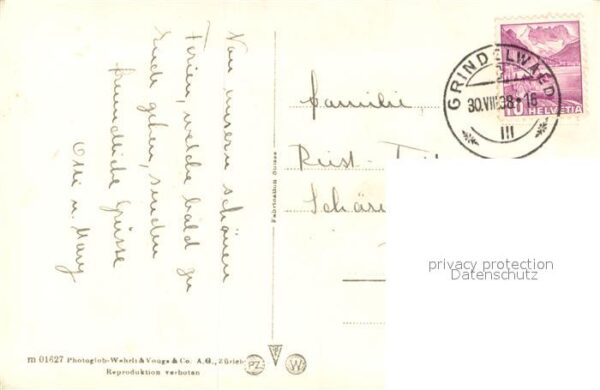 Von unseren schönen
Ferien, welche bald zu
Ende gehen, senden
freundliche Grüsse
Olli u. Mary
Familie
Rüst-
Schäre
GRINDELWALD
30.VIII.38-16
III
10 HELVETIA
Fabrication Suisse
privacy protection
Datenschutz
m 01627 Photoglob-Wehrli & Vouga & Co. A.G., Zürich
PZ W
Reproduktion verboten